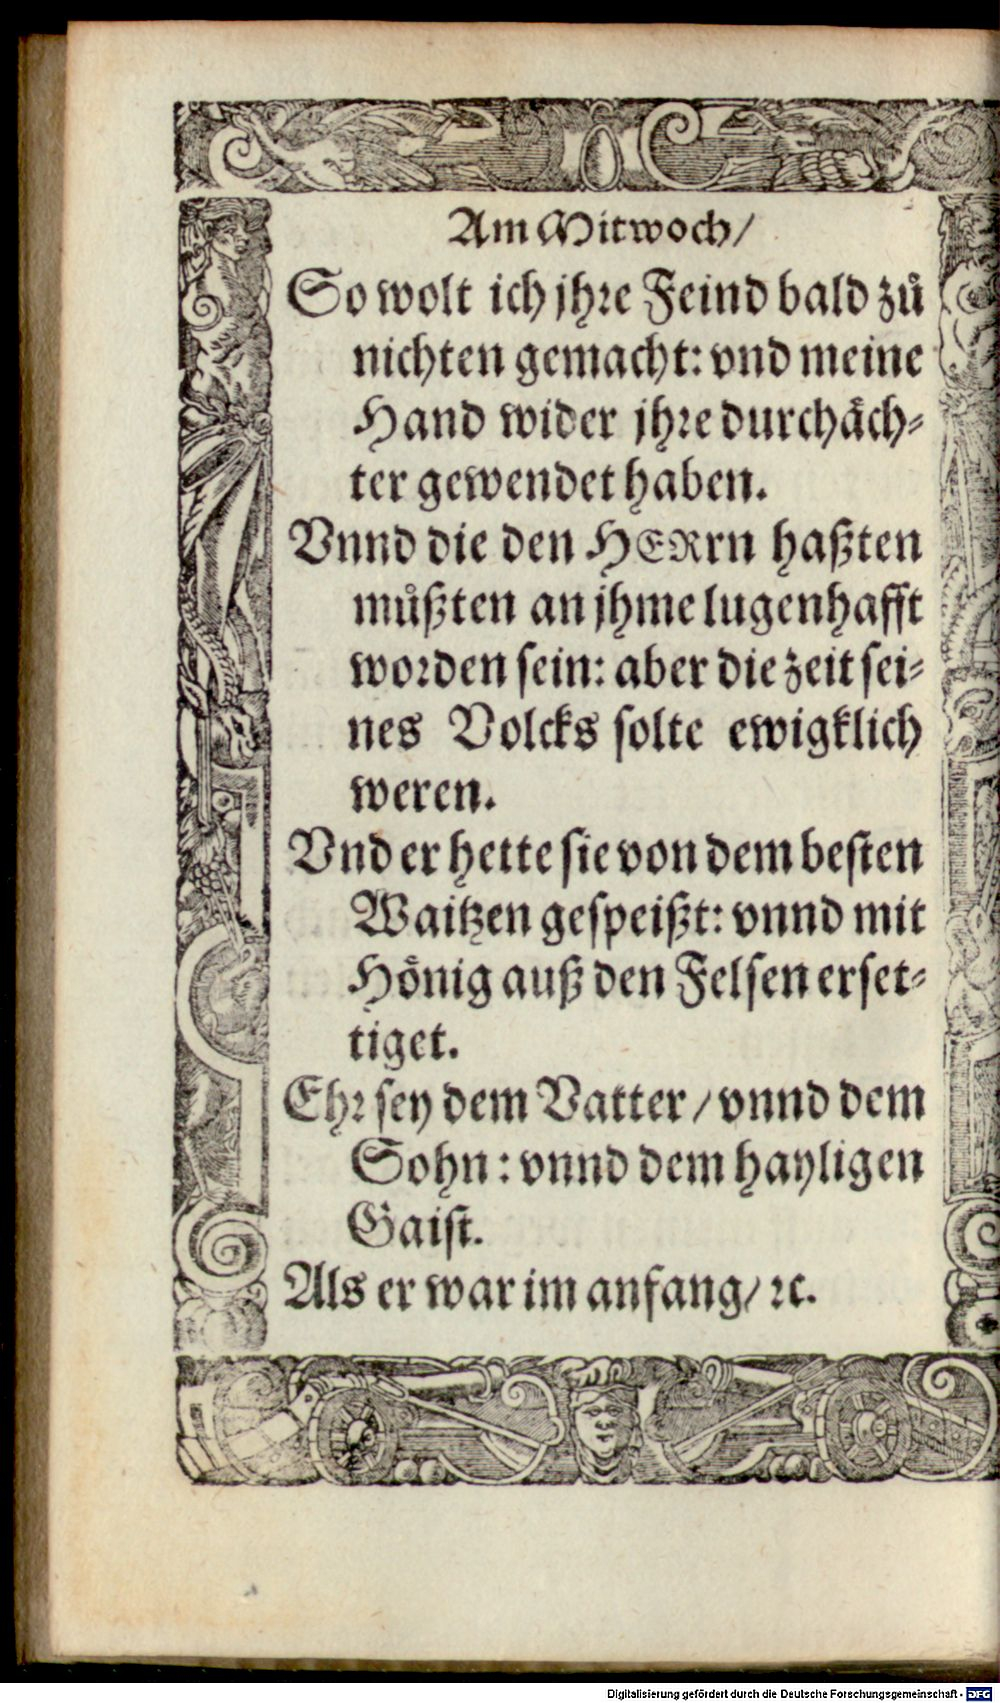 Am Mitwoch/
So wolt ich jhꝛe Feind bald zů
nichten gemacht: vnd meine
Hand wider jhꝛe durchäch⸗
ter gewendet haben.
Vnnd die den HERrn haßten
můßten an jhme lugenhafft
woꝛden sein: aber die zeit sei⸗
nes Volcks solte ewigklich
weren.
Vnd er hette sie von dem besten
Waitzen gespeißt: vnnd mit
Hönig auß den Felsen erset⸗
tiget.
Ehꝛ sey dem Vatter / vnnd dem
Sohn: vnnd dem hayligen
Gaist.
Als er war im anfang/ ꝛc.
Digitalisierung gefördert durch die Deutsche Forschungsgemeinschaft - DFG